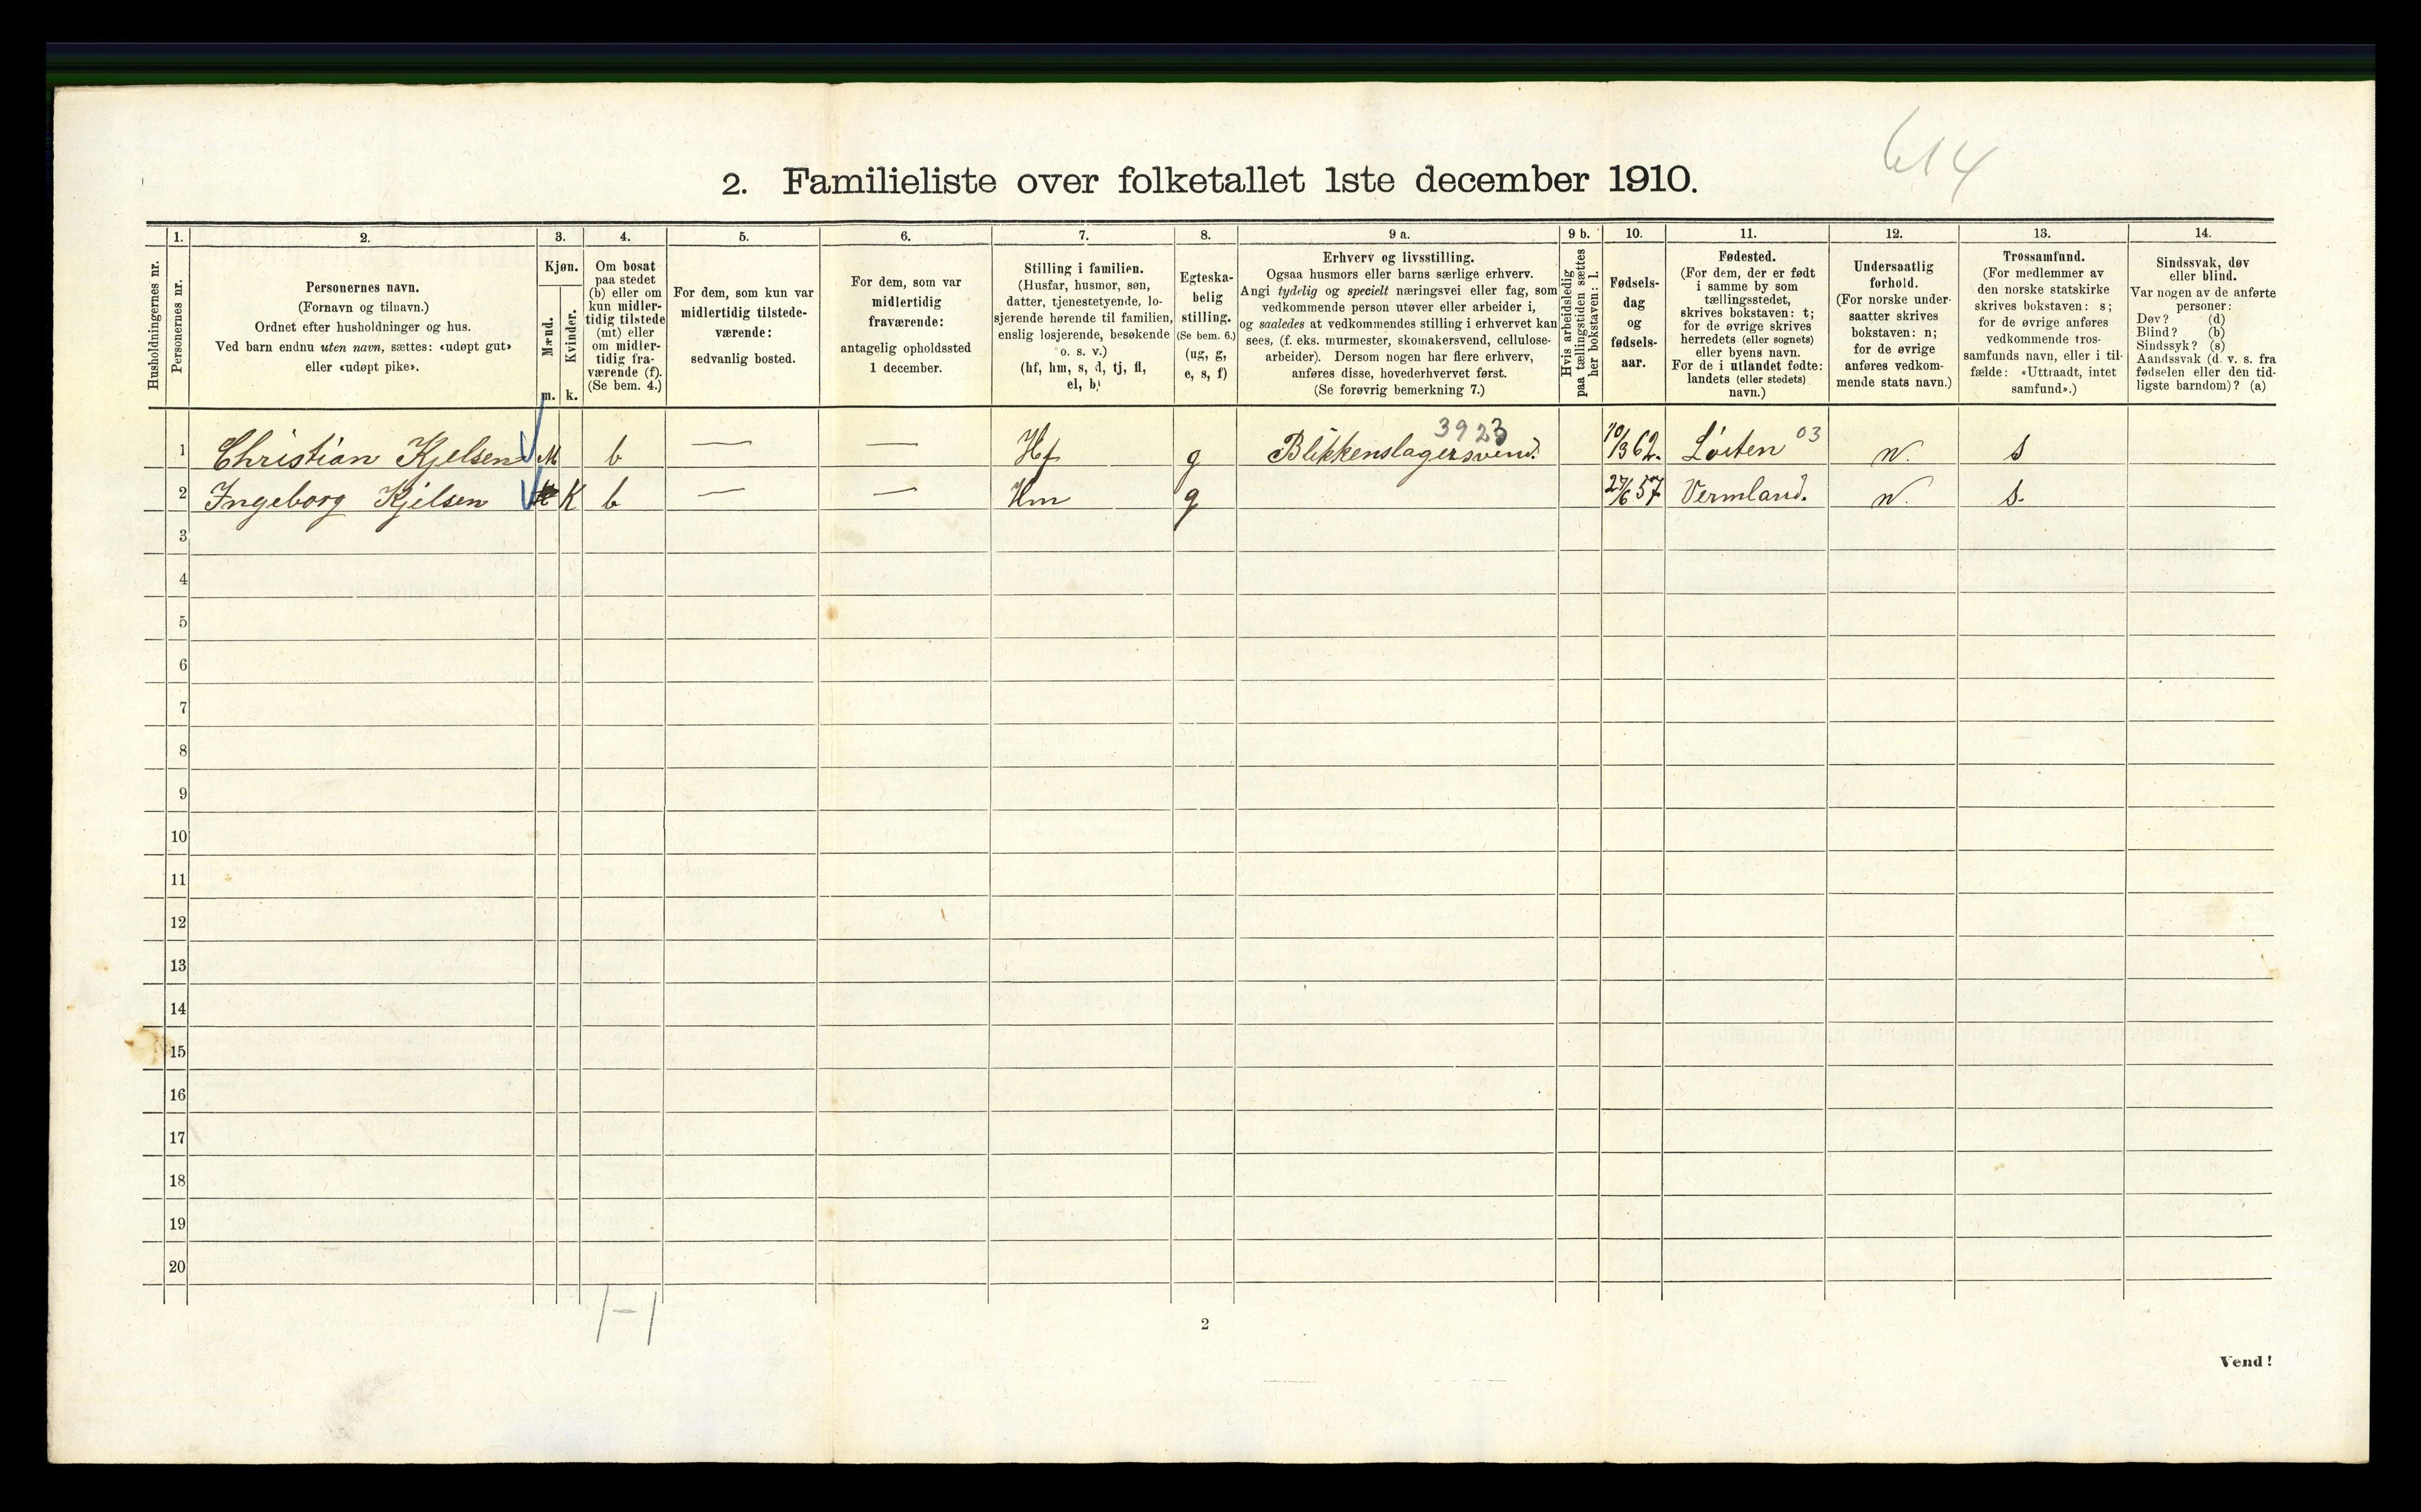 614
2. Familieliste over folketallet 1ste december 1910.
Husholdningernes nr.
1. Personernes nr.
2. Personernes navn.
(Fornavn og tilnavn.)
Ordnet efter husholdninger og hus.
Ved barn endnu uten navn, sættes: «udøpt gut»
eller «udøpt pike».
3. Kjøn.
Mænd. m.
Kvinder. k.
4. Om bosat
paa stedet
(b) eller om
kun midler-
tidig tilstede
(mt) eller
om midler-
tidig fra-
værende (f).
(Se bem. 4.)
5. For dem, som kun var
midlertidig tilstede-
værende:
sedvanlig bosted.
6. For dem, som var
midlertidig
fraværende:
antagelig opholdssted
1 december.
7. Stilling i familien.
(Husfar, husmor, søn,
datter, tjenestetyende, lo-
sjerende hørende til familien,
enslig losjerende, besøkende
o. s. v.)
(hf, hm, s, d, tj, fl,
el, b)
8. Egteska-
belig
stilling.
(Se bem. 6.)
(ug, g,
e, s, f)
9 a. Erhverv og livsstilling.
Ogsaa husmors eller barns særlige erhverv.
Angi tydelig og specielt næringsvei eller fag, som
vedkommende person utøver eller arbeider i,
og saaledes at vedkommendes stilling i erhvervet kan
sees, (f. eks. murmester, skomakersvend, cellulose-
arbeider). Dersom nogen har flere erhverv,
anføres disse, hovederhvervet først.
(Se forøvrig bemerkning 7.)
9 b. Hvis arbeidsledig
paa tællingstiden sættes
her bokstaven: l.
10. Fødsels-
dag
og
fødsels-
aar.
11. Fødested.
(For dem, der er født
i samme by som
tællingsstedet,
skrives bokstaven: t;
for de øvrige skrives
herredets (eller sognets)
eller byens navn.
For de i utlandet fødte:
landets (eller stedets)
navn.)
12. Undersaatlig
forhold.
(For norske under-
saatter skrives
bokstaven: n;
for de øvrige
anføres vedkom-
mende stats navn.)
13. Trossamfund.
(For medlemmer av
den norske statskirke
skrives bokstaven: s;
for de øvrige anføres
vedkommende tros-
samfunds navn, eller i til-
fælde: «Uttraadt, intet
samfund».)
14. Sindssvak, døv
eller blind.
Var nogen av de anførte
personer:
Døv? (d)
Blind? (b)
Sindssyk? (s)
Aandssvak (d. v. s. fra
fødselen eller den tid-
ligste barndom)? (a)
1 Christian Kjelsen M b — — Hf g Blikkenslagersvend. 3923 10/3 62. Løiten 03 n. s
2 Ingeborg Kjelsen K b — — Hm g 27/6 57 Vermland. n. s.
3
4
5
6
7
8
9
10
11
12
13
14
15
16
17
18
19
20
1-1
2
Vend!